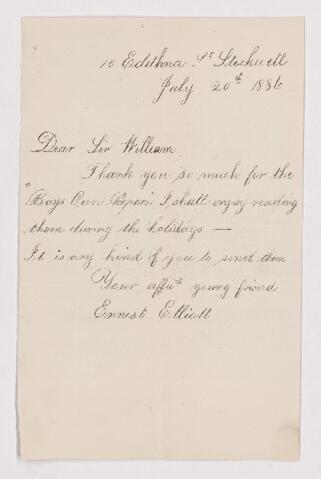 15 Edithna St Stockwell
July 20th 1886
Dear Sir William
Thank you so much for the
"Boys Own Paper". I shall enjoy reading
them during the holidays —
It is very kind of you to send them
Your affect young friend
Ernest Elliott